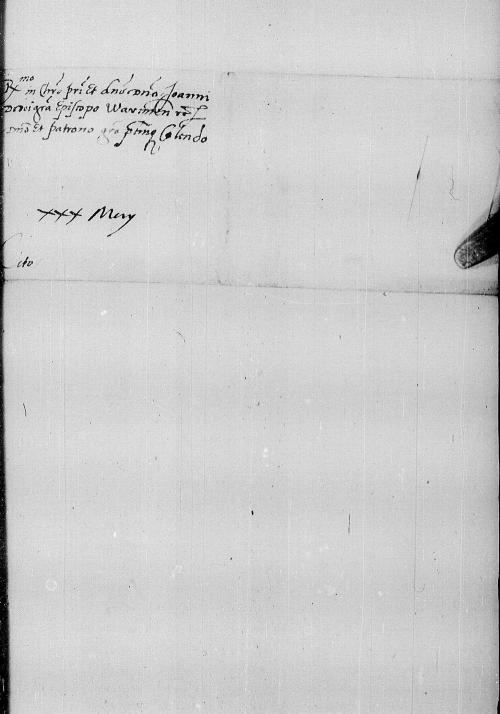 R mo in Chro pri et dno dno Joanni
dei gra Episcopo Warmien
et patrono Colendo
xxx May
Cito